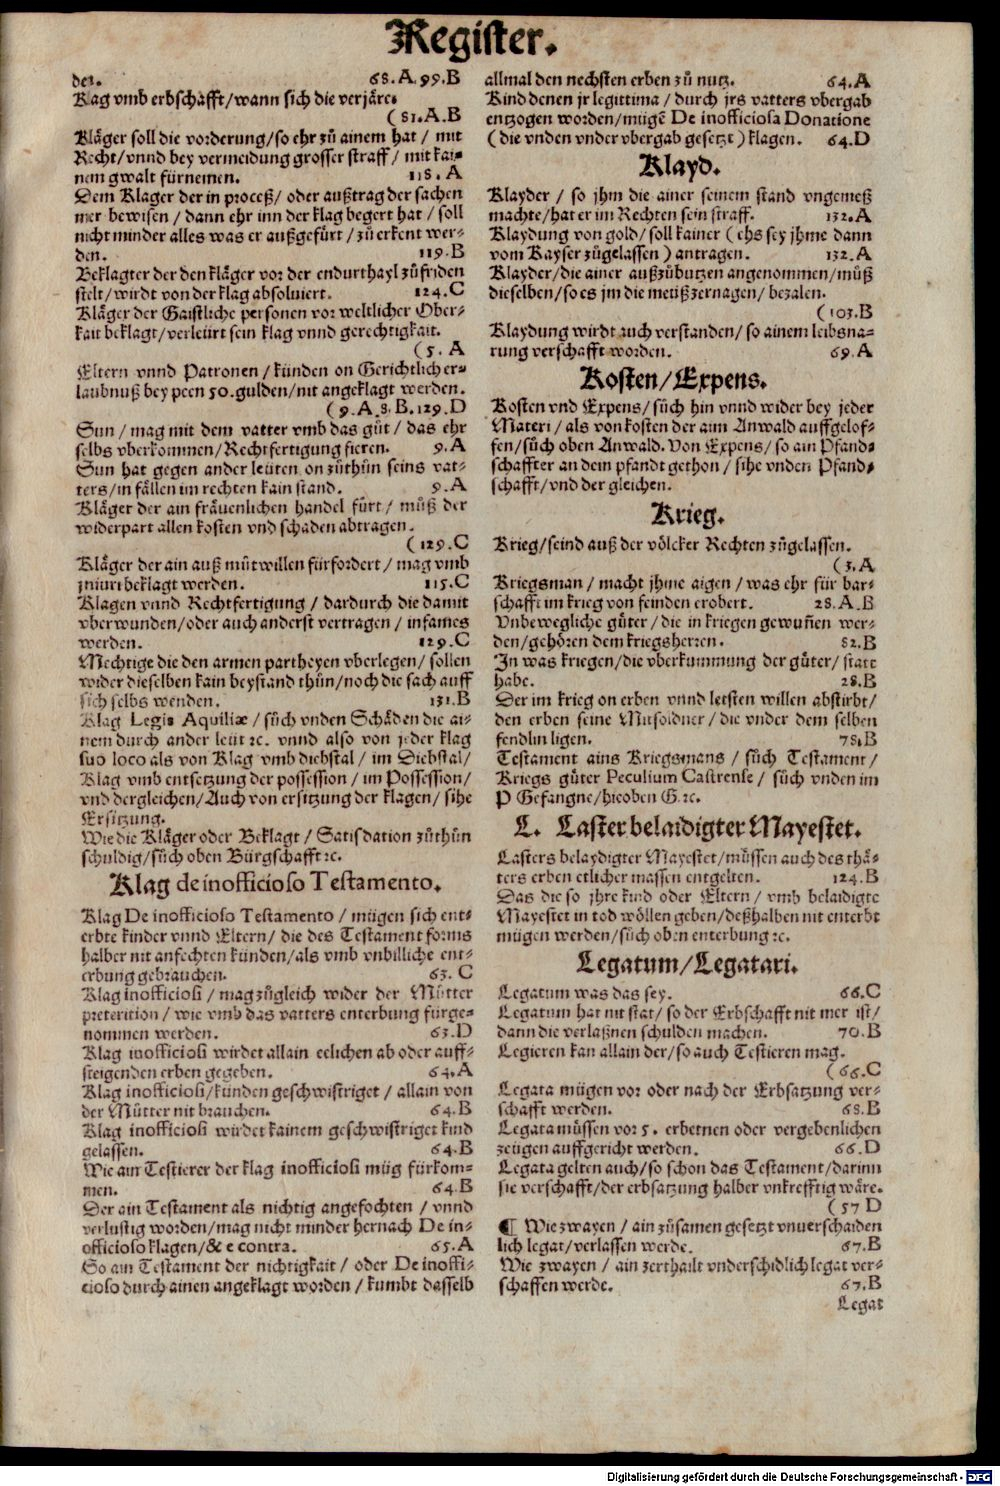 Register.
der. 68.A.99.B
Klag vmb erbschafft/wann sich die verjäre.
(81.A.B
Kläger soll die vorderung/so ehr zů ainem hat / mit
Recht/vnnd bey vermeidung grosser straff / mit kai-
nem gwalt fürnemen. 118.A
Dem Klager der in proceß/ oder außtrag der sachen
mer bewisen / dann ehr inn der klag begert hat / soll
nicht minder alles was er außgefürt / zů erkent wer-
den. 119.B
Beklagter der den kläger vor der endurthayl zůfriden
stelt/wirdt von der klag absoluiert. 124.C
Kläger der Gaistliche personen vor weltlicher Ober-
kait beklagt/verleürt sein klag vnnd gerechtigkait.
(5.A
Eltern vnnd Patronen / künden on Gerichtlich er-
laubnuß bey peen 50.gulden/nit angeklagt werden.
(9.A.8.B.129.D
Sun / mag mit dem vatter vmb das gůt / das ehr
selbs vberkommen/Rechtfertigung fieren. 9.A
Sun hat gegen ander leüten on zůthůn seins vat-
ters/in fällen im rechten kain stand. 9.A
Kläger der ain fräuenlichen handel fürt / můß der
widerpart allen kosten vnd schaden abtragen.
(129.C
Kläger der ain auß můtwillen fürfordert / mag vmb
jniuri beklagt werden. 115.C
Klagen vnnd Rechtfertigung / dardurch die damit
vberwunden/oder auch anderst vertragen / infames
werden. 129.C
Mechtige die den armen partheyen vberlegen/ sollen
wider dieselben kain beystand thůn/noch die sach auff
sich selbs wenden. 131.B
Klag Legis Aquiliæ / sůch vnden Schäden die ai-
nem durch ander leüt ꝛc. vnnd also von jeder klag
suo loco als von Klag vmb diebstal / im Diebstal/
Klag vmb entsetzung der possession / im Possession/
vnd dergleichen/Auch von ersitzung der klagen/ sihe
Ersitzung.
Wie die Kläger oder Beklagt / Satisdation zůthůn
schuldig/sůch oben Bürgschafft ꝛc.
Klag de inofficioso Testamento.
Klag De inofficioso Testamento / mügen sich ent-
erbte kinder vnnd Eltern/ die des Testament forms
halber nit anfechten künden/als vmb vnbilliche ent-
erbung gebrauchen. 63.C
Klag inofficiosi / mag zůgleich wider der Můtter
preterition / wie vmb das vatters enterbung fürge-
nommen werden. 63.D
Klag inofficiosi wirdet allain eelichen ab oder auff-
steigenden erben gegeben. 64.A
Klag inofficiosi/künden geschwistriget / allain von
der Můtter nit brauchen. 64.B
Klag inofficiosi wirdet kainem geschwistriget kind
gelassen. 64.B
Wie ain Testierer der klag inofficiosi müg fürkom-
men. 64.B
Der ain Testament als nichtig angefochten / vnnd
verlustig worden/mag nicht minder hernach De in-
officioso klagen/& e contra. 65.A
So ain Testament der nichtigkait / oder De inoffi-
cioso durch ainen angeklagt worden / kumbt dasselb
allmal den nechsten erben zů nutz. 64.A
Kind denen jr legittima / durch jrs vatters vbergab
entzogen worden/mügẽ De inofficiosa Donatione
(die vnden vnder vbergab gesetzt) klagen. 64.D
Klayd.
Klayder / so jhm die ainer seinem stand vngemeß
machte/hat er im Rechten sein straff. 132.A
Klaydung von gold/soll kainer (ehs sey jhme dann
vom Kayser zůgelassen) antragen. 132.A
Klayder/die ainer außzůbutzen angenommen/můß
dieselben/so es jm die meüß zernagen/ bezalen.
(103.B
Klaydung wirdt auch verstanden/so ainem leibsna-
rung verschafft worden. 69.A
Kosten/Expens.
Kosten vnd Expens/sůch hin vnnd wider bey jeder
Materi / als von kosten der aim Anwald auffgelof-
fen/sůch oben Anwald. Von Expens/so ain Pfand-
schaffter an dem pfandt gethon / sihe vnden Pfand-
schafft/vnd der gleichen.
Krieg.
Krieg/seind auß der völcker Rechten zůgelassen.
(3.A
Kriegsman / macht jhme aigen / was ehr für bar-
schafft im krieg von feinden erobert. 28.A.B
Vnbewegliche gůter / die in kriegen gewuñen wer-
den/gehören dem kriegsherren. 82.B
In was kriegen/die vberkummung der gůter/ statt
habe. 28.B
Der im krieg on erben vnnd letsten willen abstirbt/
den erben seine Mitsoldner / die vnder dem selben
fendlin ligen. 78.B
Testament ains Kriegsmans / sůch Testament/
Kriegs gůter Peculium Castrense / sůch vnden im
P Gefangne/hieoben G.ꝛc.
L. Laster belaidigter Mayestet.
Lasters belaydigter Mayestet/müssen auch des thä-
ters erben etlicher massen entgelten. 124.B
Das die so jhre kind oder Eltern / vmb belaidigte
Mayestet in tod wöllen geben/deßhalben nit enterbt
mügen werden/sůch oben enterbung ꝛc.
Legatum/Legatari.
Legatum was das sey. 66.C
Legatum hat nit stat/ so der Erbschafft nit mer ist/
dann die verlaßnen schulden machen. 70.B
Legieren kan allain der/so auch Testieren mag.
(66.C
Legata mügen vor oder nach der Erbsatzung ver-
schafft werden. 68.B
Legata müssen vor 5. erbetnen oder vergebenlichen
zeügen auffgericht werden. 66.D
Legata gelten auch/so schon das Testament/darinn
sie verschafft/der erbsatzung halber vnkrefftig wäre.
(57 D
¶ Wie zwayen / ain zůsamen gesetzt vnuerschaiden
lich legat/verlassen werde. 67.B
Wie zwayen / ain zerthailt vnderschidlich legat ver-
schaffen werde. 67.B
Legat
Digitalisierung gefördert durch die Deutsche Forschungsgemeinschaft - DFG